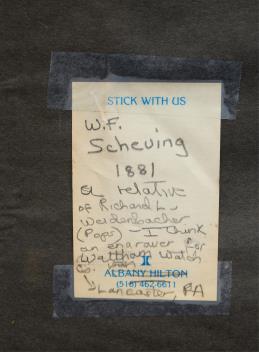 STICK WITH US
W.F.
Scheving
1881
a relative
of Richard L.
Weidenbacher
(Pops) - I think
an engraver for
Waltham Watch
Co.
ALBANY HILTON
(518) 462-6611
Lancaster, PA